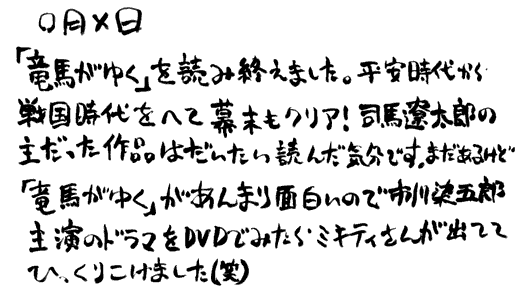 ○月×日
「竜馬がゆく」を読み終えました。平安時代から
戦国時代をへて幕末もクリア!司馬遼太郎の
主だった作品はだいたい読んだ気分です。まだあるけど
「竜馬がゆく」があんまり面白いので市川染五郎
主演のドラマをDVDでみたらミキティさんが出てて
ひっくりこけました(笑)